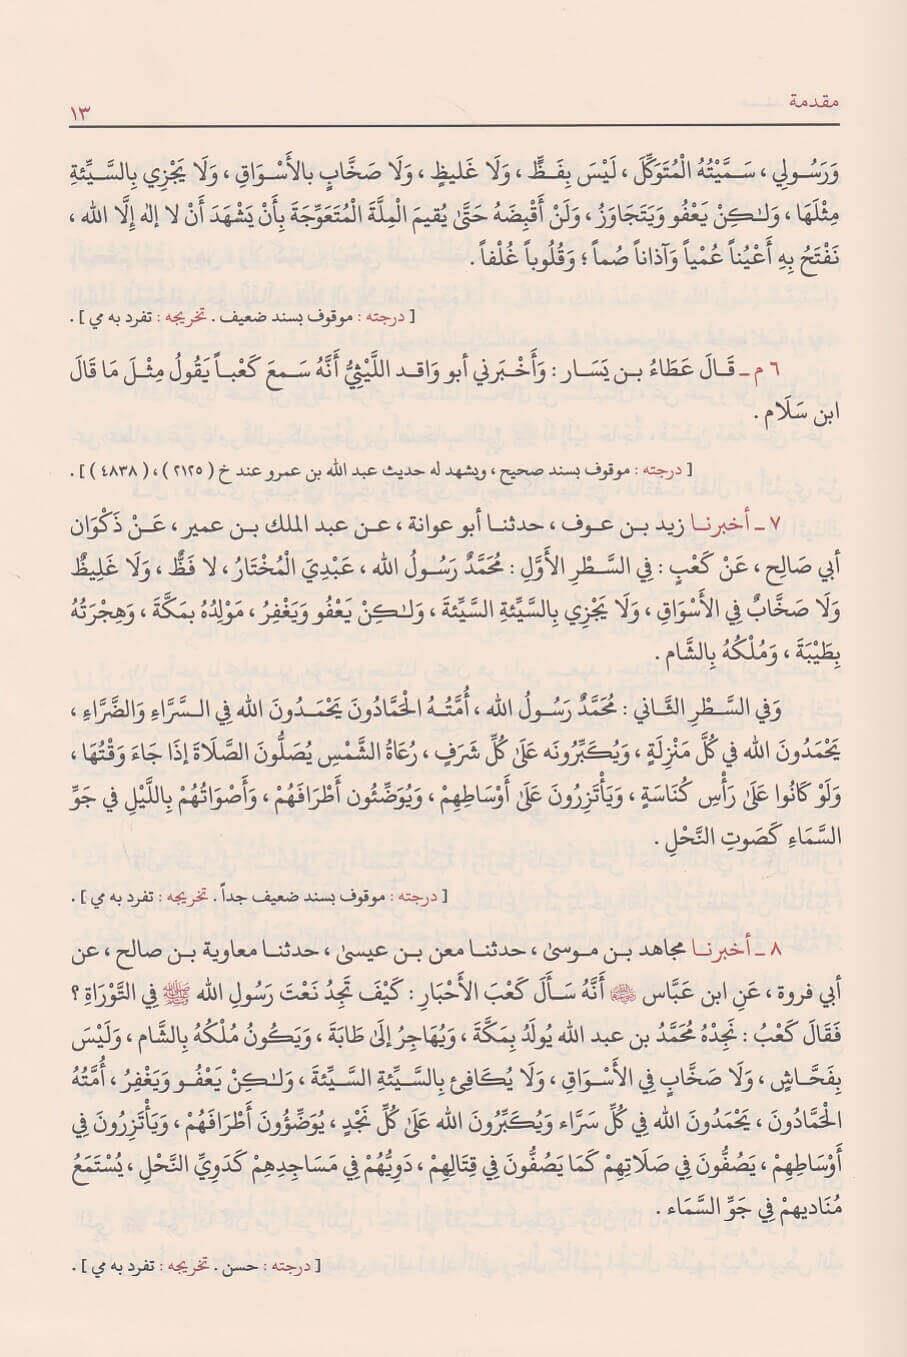 مقدمة ١٣
وَرَسُولِي ، سَمَّيْتُهُ الْمُتَوَكِّلَ ، لَيْسَ بِفَظٍّ ، وَلَا غَلِيظٍ ، وَلَا صَخَّابٍ بالأَسْوَاقِ ، وَلَا يَجْزِي بِالسَّيِّئَةِ
مِثْلَهَا ، وَلٰكِنْ يَعْفُو وَيَتَجَاوَزُ ، وَلَنْ أَقْبِضَهُ حَتَّىٰ يُقيمَ الْمِلَّةَ الْمُتَعَوِّجَةَ بِأَنْ يَشْهَدَ أَنْ لا إلٰه إِلَّا الله ،
نَفْتَحُ بِهِ أَعْيُناً عُمْياً وَآذاناً صُماً ؛ وَقُلُوباً غُلْفاً .
[ درجته : موقوف بسند ضعيف . تخريجه : تفرد به مي ] .
٦ م ـ قَـالَ عَطَاءُ بـن يَسَار : وَأَخْبَرني أبو وَاقد اللَّيْثِيُّ أَنَّهُ سَـمعَ كَعْباً يَقُولُ مِثْلَ مَا قَالَ
ابن سَلَام .
[ درجته : موقوف بسند صحيح ، ويشهد له حديث عبد الله بن عمرو عند خ ( ٢١٢٥ ) ، ( ٤٨٣٨ ) ] .
٧ ـ أخبرنـا زيد بـن عـوف ، حدثنـا أبو عوانة ، عـن عبد الملك بـن عمير ، عَـنْ ذَكْوَان
أبي صَالِحٍ ، عَنْ كَعْبٍ : فِي السَّطْرِ الأَوَّلِ : مُحَمَّدٌ رَسُولُ الله ، عَبْدِيَ الْمُخْتَارُ ، لا فَظٌّ ، وَلَا غَلِيظٌ
وَلَا صَخَّابٌ فِي الأَسْوَاقِ ، وَلَا يَجْزِي بِالسَّيِّئَةِ السَّيِّئَةَ ، وَلٰكِنْ يَعْفُو وَيَغْفِرُ ، مَوْلِدُهُ بمَكَّةَ ، وَهِجْرَتُهُ
بِطَيْبَةَ ، وَمُلْكُهُ بِالشَّام .
وَفي السَّطْرِ الثَّـاني : مُحَمَّدٌ رَسُـولُ الله ، أُمَّتُـهُ الْحَمَّادُونَ يَحْمَـدُونَ الله فِي السَّرَّاءِ وَالضَّرَّاءِ ،
يَحْمَدُونَ الله في كُلِّ مَنْزِلَةٍ ، وَيُكَبِّرُونَه عَلَىٰ كُلِّ شَرَفٍ ، رُعَاةُ الشَّمْسِ يُصَلُّونَ الصَّلَاةَ إذَا جَاءَ وَقْتُهَا ،
وَلَوْ كَانُوا عَلَىٰ رَأْسِ كُنَاسَةٍ ، وَيَأْتَزِرُونَ عَلَىٰ أَوْسَاطِهِمْ ، وَيُوَضِّئُون أَطْرَافَهُمْ ، وَأَصْوَاتُهُمْ بِاللَّيْلِ في جَوِّ
السَّمَاءِ كَصَوتِ النَّحْلِ .
[ درجته : موقوف بسند ضعيف جداً . تخريجه : تفرد به مي ] .
٨ ـ أخبرنـا مجاهد بـن مـوسىٰ ، حدثنـا معن بـن عيسىٰ ، حدثنـا معاوية بـن صالح ، عن
أبي فروة ، عَنِ ابن عَبَّاس ﵄ أَنَّهُ سَـأَلَ كَعْبَ الأَحْبَارِ : كَيْفَ تَجِدُ نَعْتَ رَسُولِ الله ﷺ فِي التَّوْرَاةِ ؟
فَقَالَ كَعْبُ : نَجِدُهُ مُحَمَّدُ بن عبد الله يُولَدُ بِمَكَّةَ ، وَيُهَاجِرُ إلَىٰ طَابَةَ ، وَيَكُونُ مُلْكُهُ بِالشَّام ، وَلَيْسَ
بِفَحَّاشٍ ، وَلَا صَخَّابٍ فِي الأَسْـوَاقِ ، وَلَا يُكَافِئ بِالسَّيِّئَةِ السَّيِّئَةَ ، وَلٰكِنْ يَعْفُـو وَيَغْفِرُ ، أُمَّتُهُ
الْحَمَّادُونَ ، يَحْمَدُونَ الله فِي كُلِّ سَرَّاء وَيُكَبِّرُونَ الله عَلَىٰ كُلِّ نَجْدٍ ، يُوَضِّؤُونَ أَطْرَافَهُمْ ، وَيَأْتَزِرُونَ فِي
أَوْسَاطِهِمْ ، يَصُفُّونَ فِي صَلَاتِهِمْ كَمَا يَصُفُّونَ فِي قِتَالِهِمْ ، دَوِيُّهُمْ فِي مَسَاجِدِهِمْ كَدَوِيِّ النَّحْلِ ، يُسْتَمَعُ
مُنَاديهمْ فِي جَوِّ السَّمَاء .
[ درجته : حسن . تخريجه : تفرد به مي ] .